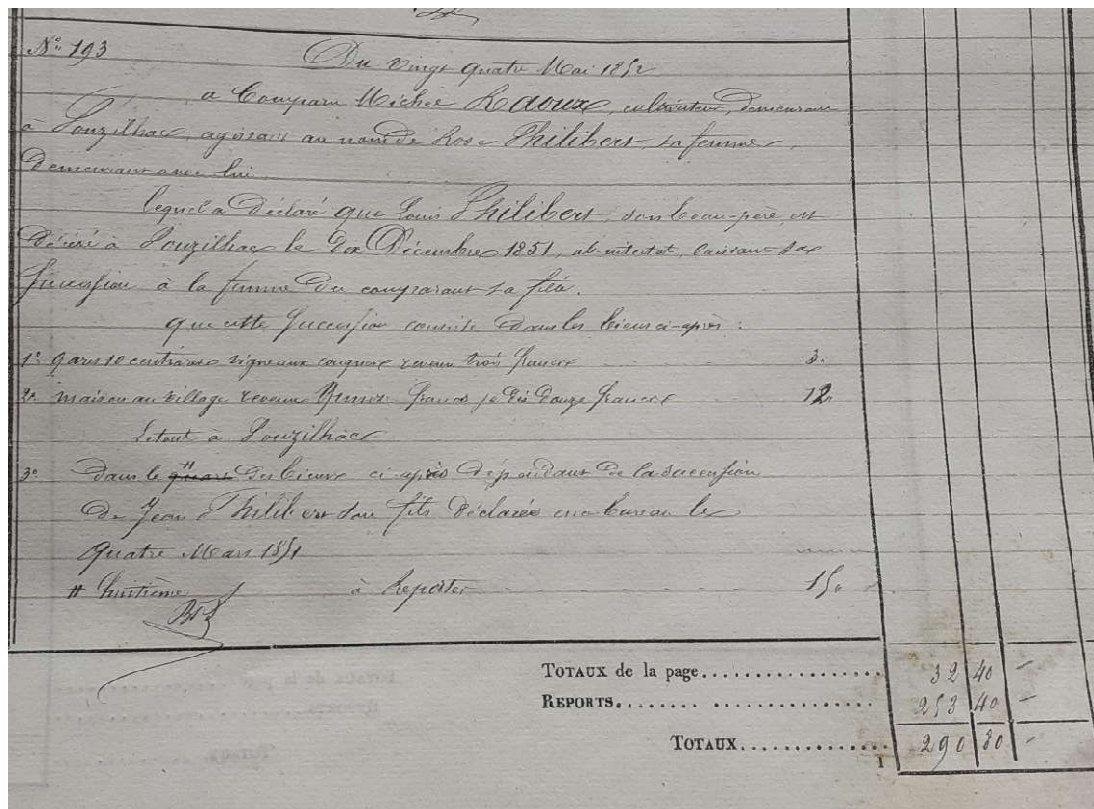 N° 193
Du vingt quatre Mai 1852
a Comparu Michel Raoux, cultivateur, demeurant
à Pouzilhac, agissant au nom de Rose Philibert sa femme,
demeurant avec lui.
lequel a Déclaré que Louis Philibert, son beau-père, est
Décédé à Pouzilhac le Dix Décembre 1851, ab-intestat, laissant sa
Succession à la femme du comparant sa fille.
que cette Succession consiste dans les biens ci-après :
1° 9 ares 10 centiares vigne aux revenu trois francs 3.
2° maison au village revenu francs je dis Douze francs 12
Le tout à Pouzilhac
3° Dans le quart " Des biens ci-après dépendant de la succession
De Jean Philibert son fils déclarée en ce bureau le
Quatre Mars 1851
# huitième à Reporter 15.
TOTAUX de la page................. 32 40 -
REPORTS....... ............... 253 40 -
TOTAUX.............. 290 80 -
1